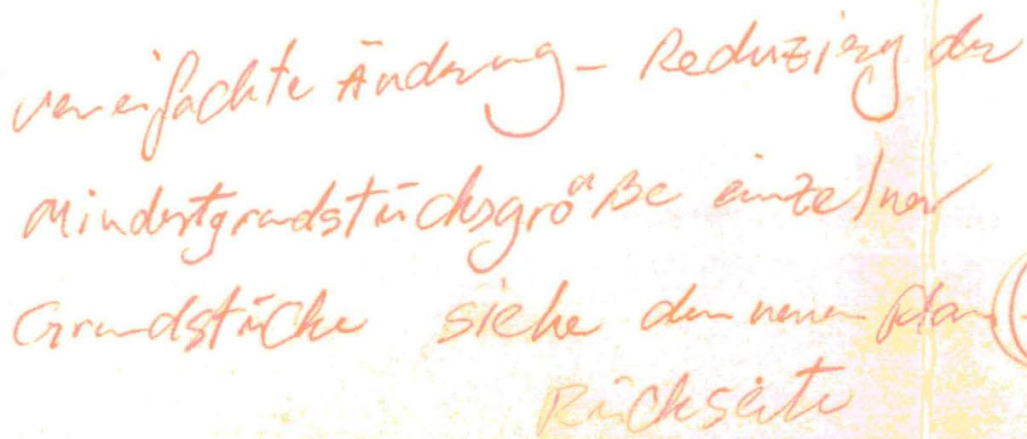 vereinfachte Änderung - Reduzierg der
Mindestgrundstücksgröße einzelner
Grundstücke siehe den neuen Plan (
Rückseite